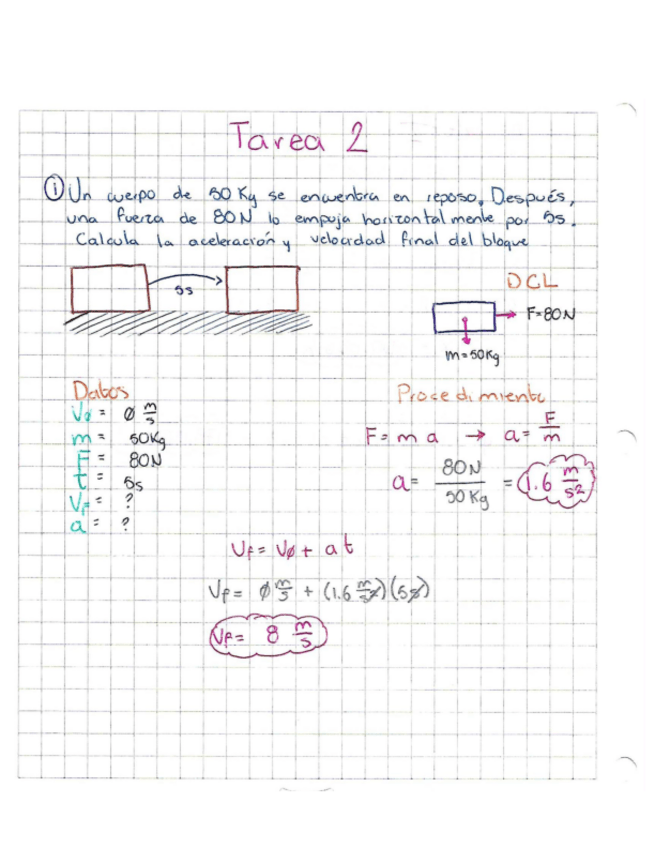 Tarea 2
① Un cuerpo de 50 Kg se encuentra en reposo. Después,
una fuerza de 80N lo empuja horizontalmente por 5s.
Calcula la aceleración y velocidad final del bloque
5s
DCL
F=80N
m=50Kg
Datos
V∅ = ∅ m/s
m = 50Kg
F = 80N
t = 5s
Vf = ?
a = ?
Procedimiento
F = m a → a = F/m
a = 80N/50Kg = 1.6 m/s²
Vf = V∅ + a t
Vf = ∅ m/s + (1.6 m/s²)(5s)
Vf = 8 m/s